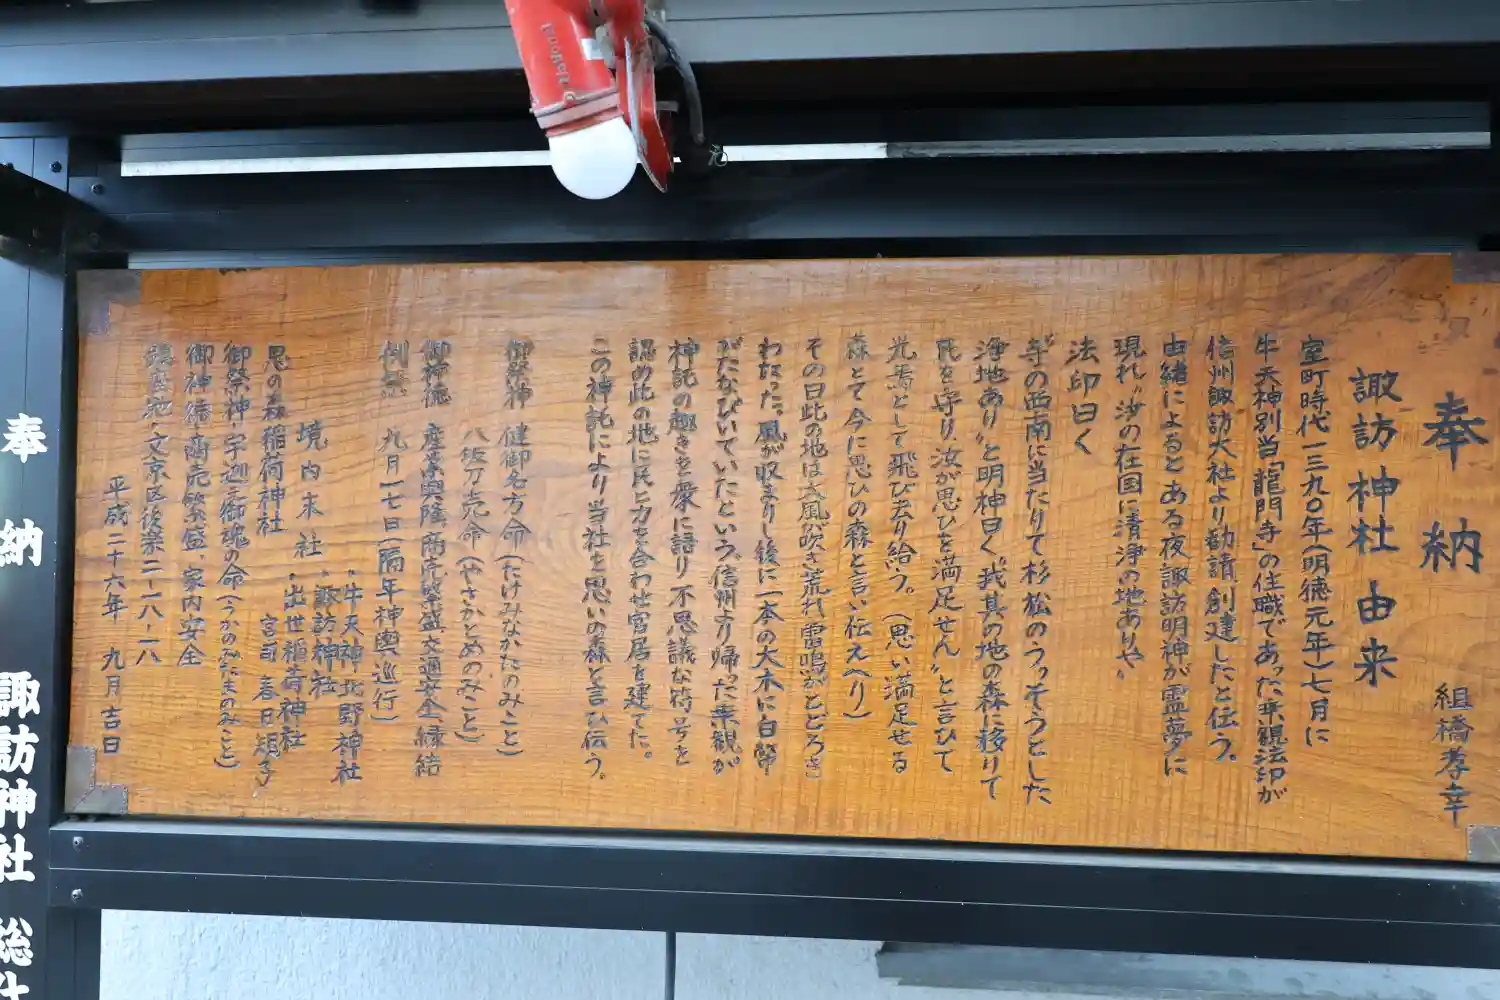 奉納
組橋孝幸
諏訪神社由来
室町時代一三九〇年(明徳元年)七月に
牛天神別当「龍門寺」の住職であった乗観法印が
信州諏訪大社より勧請創建したと伝う。
由緒によるとある夜諏訪明神が霊夢に
現れ〝汝の在国に清浄の地ありや〟
法印曰く
〝寺の西南に当たりて杉松のうっそうとした
浄地あり〟と明神曰く〝我其の地の森に移りて
氏を守り汝が思ひを満足せん〟と言ひて
光焉として飛び去り給う。(思い満足せる
森とて今に思ひの森と言い伝えへり)
その日此の地は大風吹き荒れ雷鳴がとどろき
わたった。風が収まりし後に一本の大木に白幣
がたなびいていたという。信州より帰った乗観が
神託の趣きを衆に語り不思議な符号を
認め此の地に民と力を合わせ宮居を建てた。
この神託により当社を思いの森と言ひ伝う。
御祭神 健御名方命(たけみなかたのみこと)
八坂刀売命(やさかとめのみこと)
御神徳 産業興隆、商売繁盛、交通安全、縁結
例祭 九月二七日(隔年神輿巡行)
境内末社
・牛天神北野神社
・諏訪神社
・出世稲荷神社
思の森稲荷神社
宮司 春日
御祭神・宇迦之御魂の命(うかのみたまのみこと)
御神徳・商売繁盛、家内安全
鎮座地・文京区後楽二-一八-一八
平成二十六年 九月吉日
奉納 諏訪神社 総
National